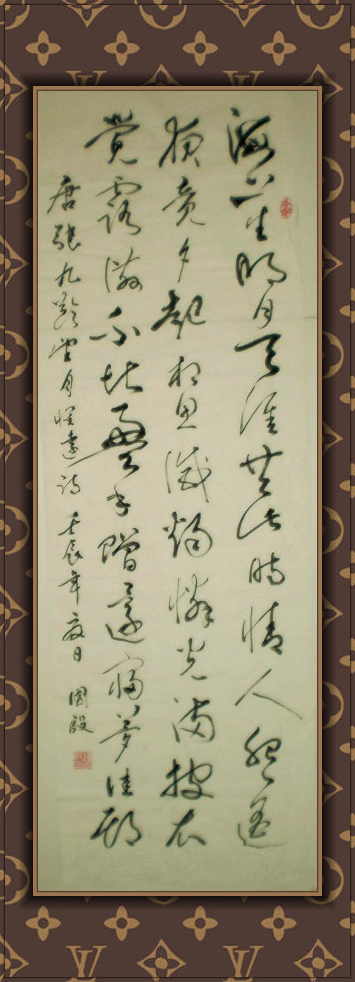 海上生明月天涯共此時情人怨遥
夜竟夕起相思滅燭憐光滿披衣
覺露滋不堪盈手贈還寢夢佳期
唐張九齡望月懷遠詩 壬辰年夏日 國